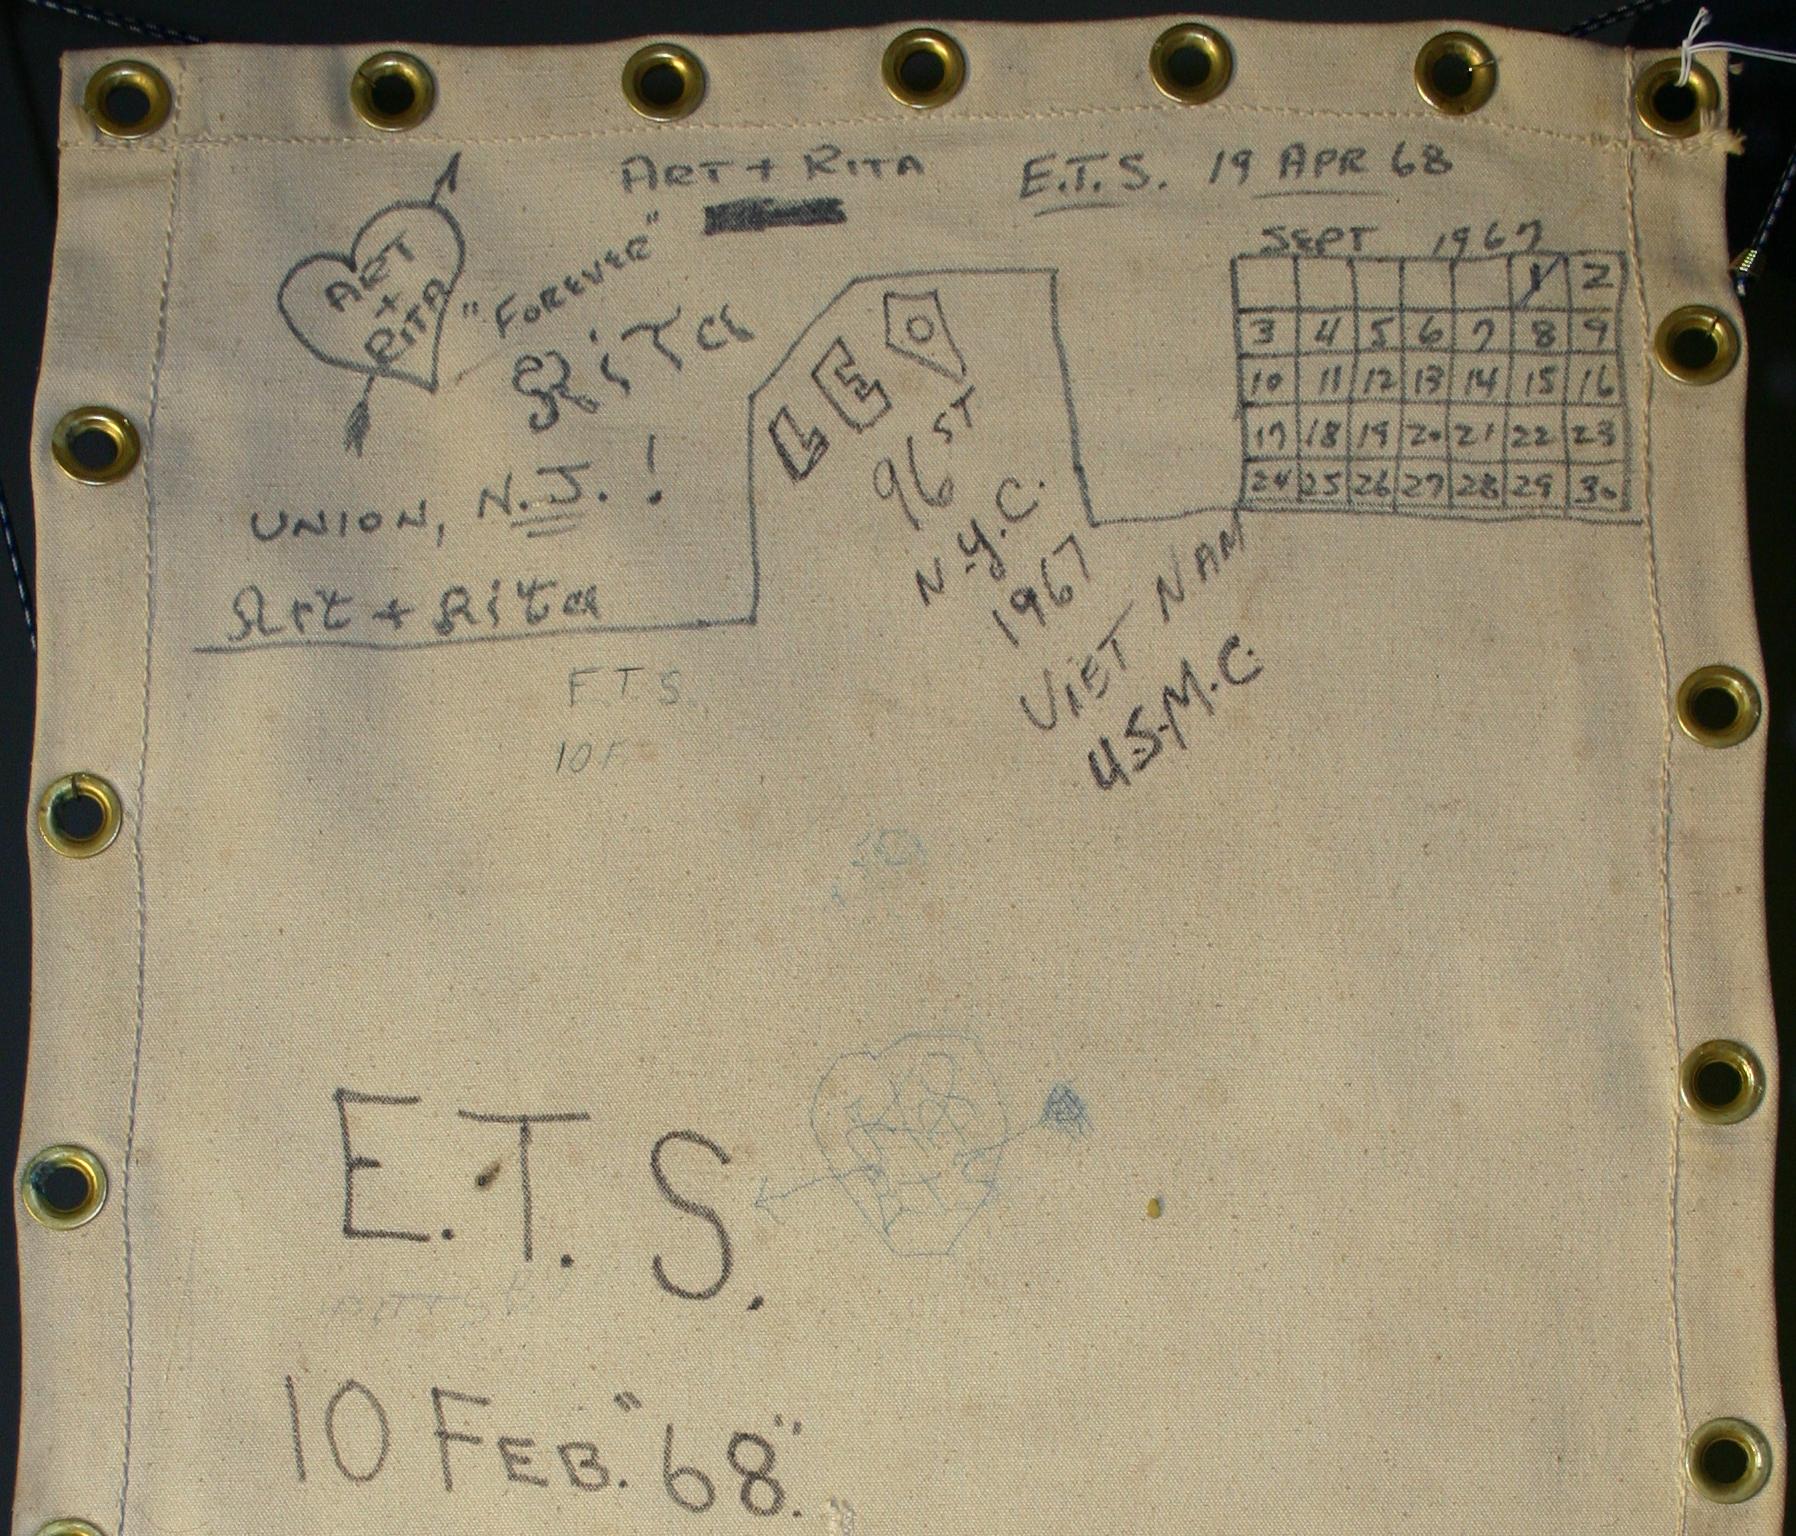 ART + RITA
E.T.S. 19 APR 68
ART
+
RITA
"FOREVER"
RiTa
UNION, N.J. !
Art + Rita
LEO
96 ST
N.Y.C.
1967
VIET NAM
U.S.M.C.
SEPT 1967
1 2
3 4 5 6 7 8 9
10 11 12 13 14 15 16
17 18 19 20 21 22 23
24 25 26 27 28 29 30
E.T.S.
10 F
E.T.S.
10 FEB. "68".